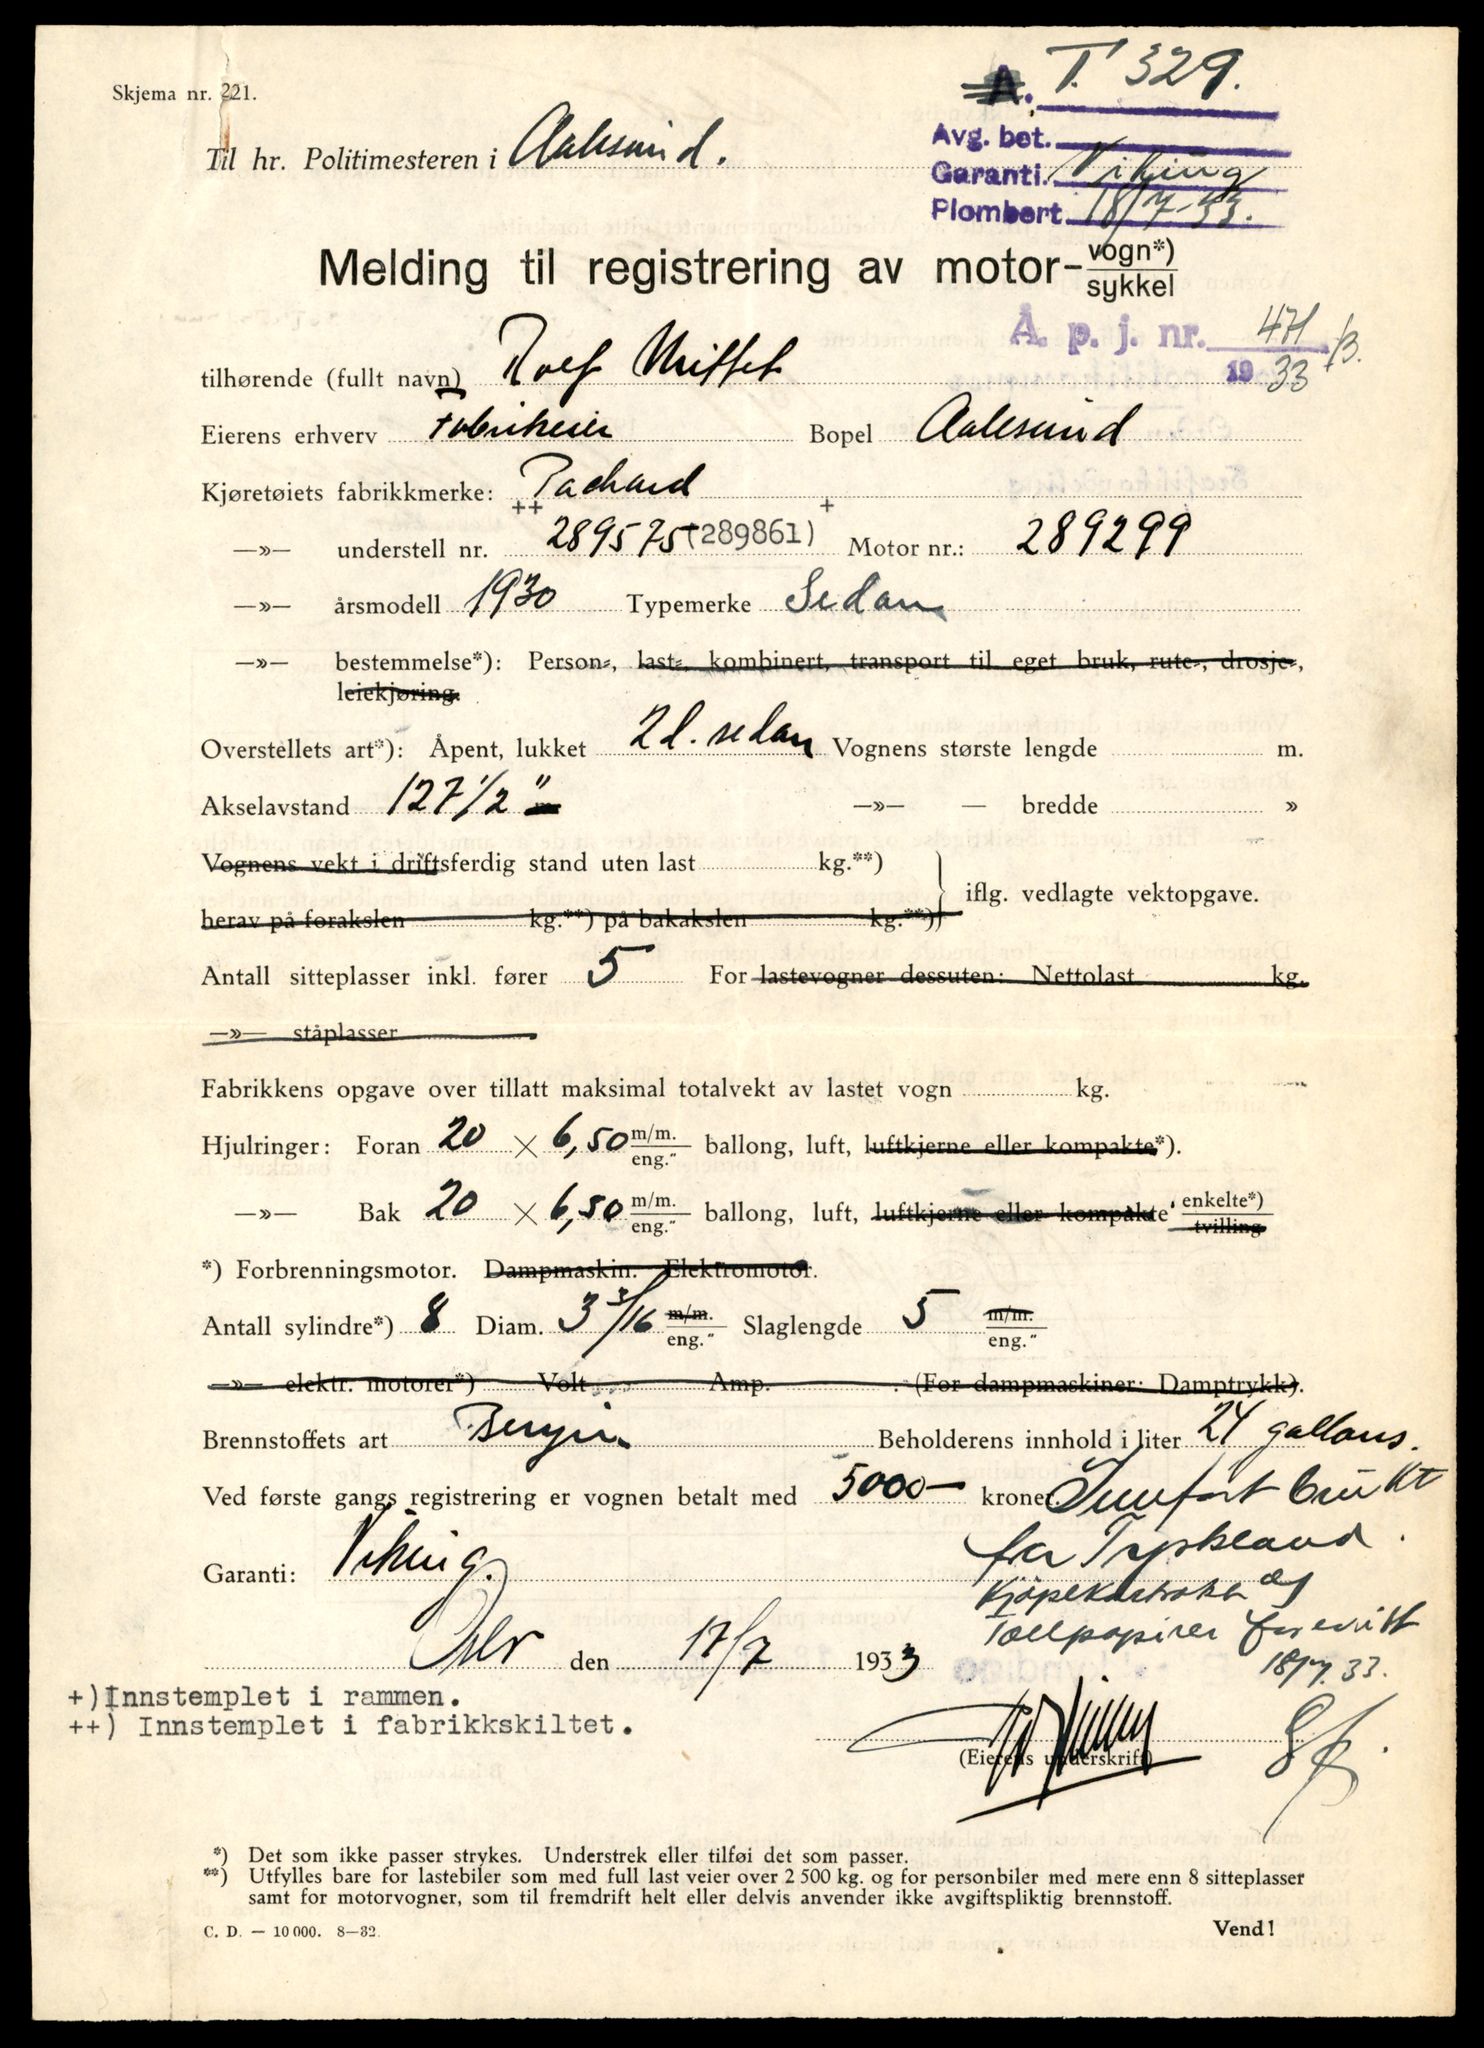 Skjema nr. 221.
A. T. 329.
Avg. bet.
Til hr. Politimesteren i Aalesund.
Garanti. Viking
Plombert 18/7-33.
Melding til registrering av motor-vogn*)
sykkel
Å. p. j. nr. 471/33 B.
19
tilhørende (fullt navn) Rolf
Eierens erhverv Fabrikeier Bopel Aalesund
Kjøretøiets fabrikkmerke: Packard
++ +
—»— understell nr. 289575 (289861) Motor nr.: 289299
—»— årsmodell 1930 Typemerke Sedan
—»— bestemmelse*): Person-, last-, kombinert, transport til eget bruk, rute-, drosje-,
leiekjøring.
Overstellets art*): Åpent, lukket 2 d. sedan Vognens største lengde m.
Akselavstand 127 1/2 " —»— — bredde »
Vognens vekt i driftsferdig stand uten last kg.**)
iflg. vedlagte vektopgave.
herav på forakslen kg.**) på bakakslen kg.**)
Antall sitteplasser inkl. fører 5 For lastevogner dessuten: Nettolast kg.
—»— ståplasser
Fabrikkens opgave over tillatt maksimal totalvekt av lastet vogn kg.
Hjulringer: Foran 20 × 6,50 m/m. eng." ballong, luft, luftkjerne eller kompakte*).
—»— Bak 20 × 6,50 m/m. eng." ballong, luft, luftkjerne eller kompakte, enkelte*) tvilling
*) Forbrenningsmotor. Dampmaskin. Elektromotor.
Antall sylindre*) 8 Diam. 3 3/16 m/m. eng." Slaglengde 5 m/m. eng."
—»— elektr. motorer*) Volt Amp. . (For dampmaskiner: Damptrykk).
Brennstoffets art Benzin Beholderens innhold i liter 24 gallons.
Ved første gangs registrering er vognen betalt med 5000— kroner. Innført brukt
fra Tyskland.
Garanti: Viking.
Kjöpekontrakt og
Tollpapirer forevist
18/7.33.
Oslo den 17/7 1933
+)Innstemplet i rammen.
++) Innstemplet i fabrikkskiltet.
(Eierens underskrift)
*) Det som ikke passer strykes. Understrek eller tilføi det som passer.
**) Utfylles bare for lastebiler som med full last veier over 2 500 kg. og for personbiler med mere enn 8 sitteplasser
samt for motorvogner, som til fremdrift helt eller delvis anvender ikke avgiftspliktig brennstoff.
C. D. — 10 000. 8—32.
Vend!